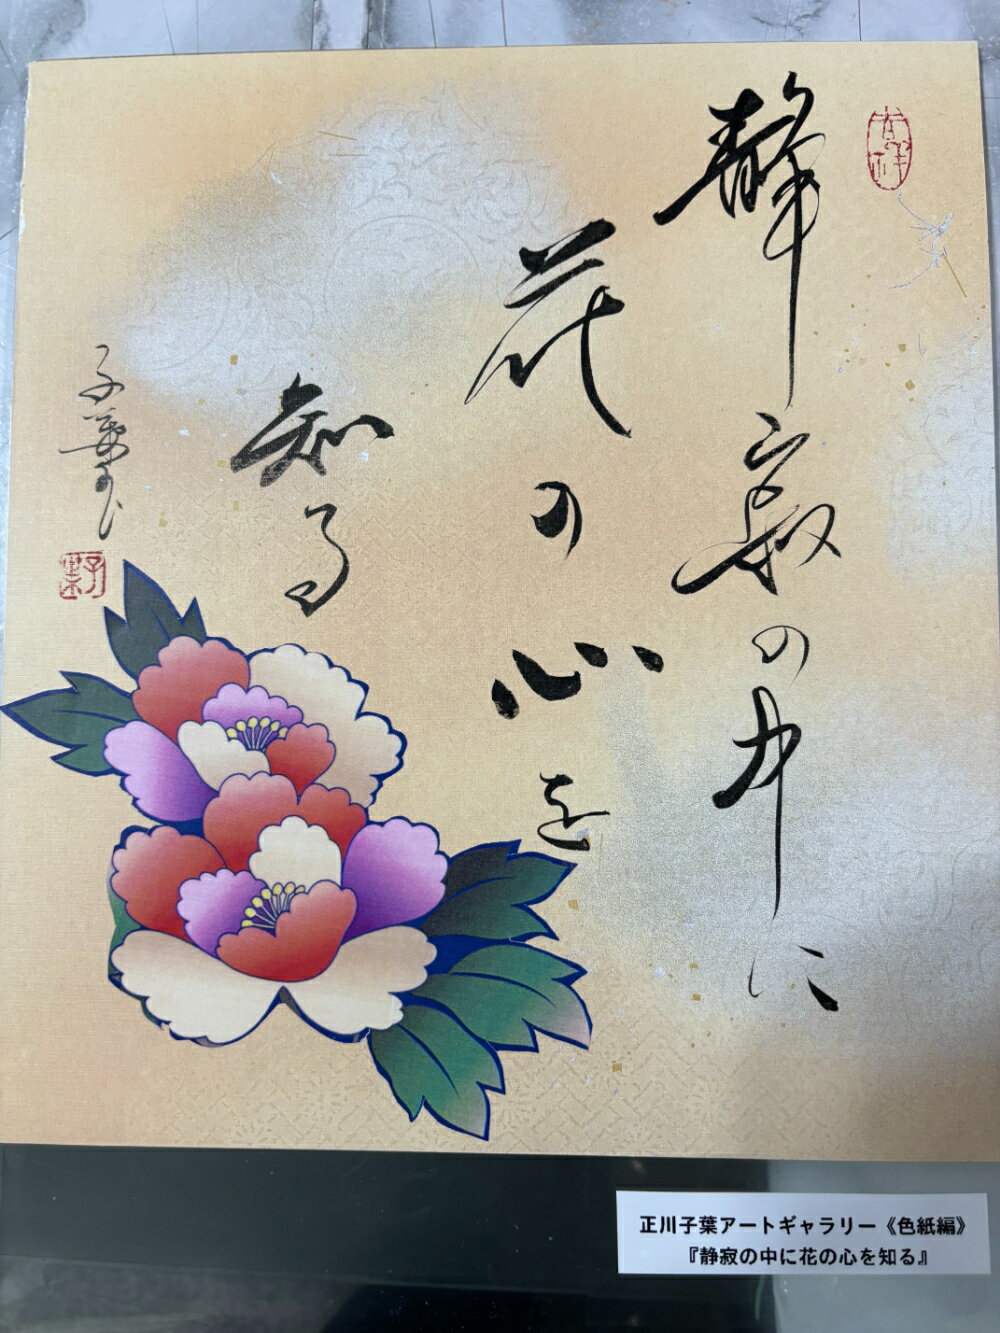 靜寂の中に
花の心を
知る
子葉
吉祥
子葉
正川子葉アートギャラリー《色紙編》
『静寂の中に花の心を知る』